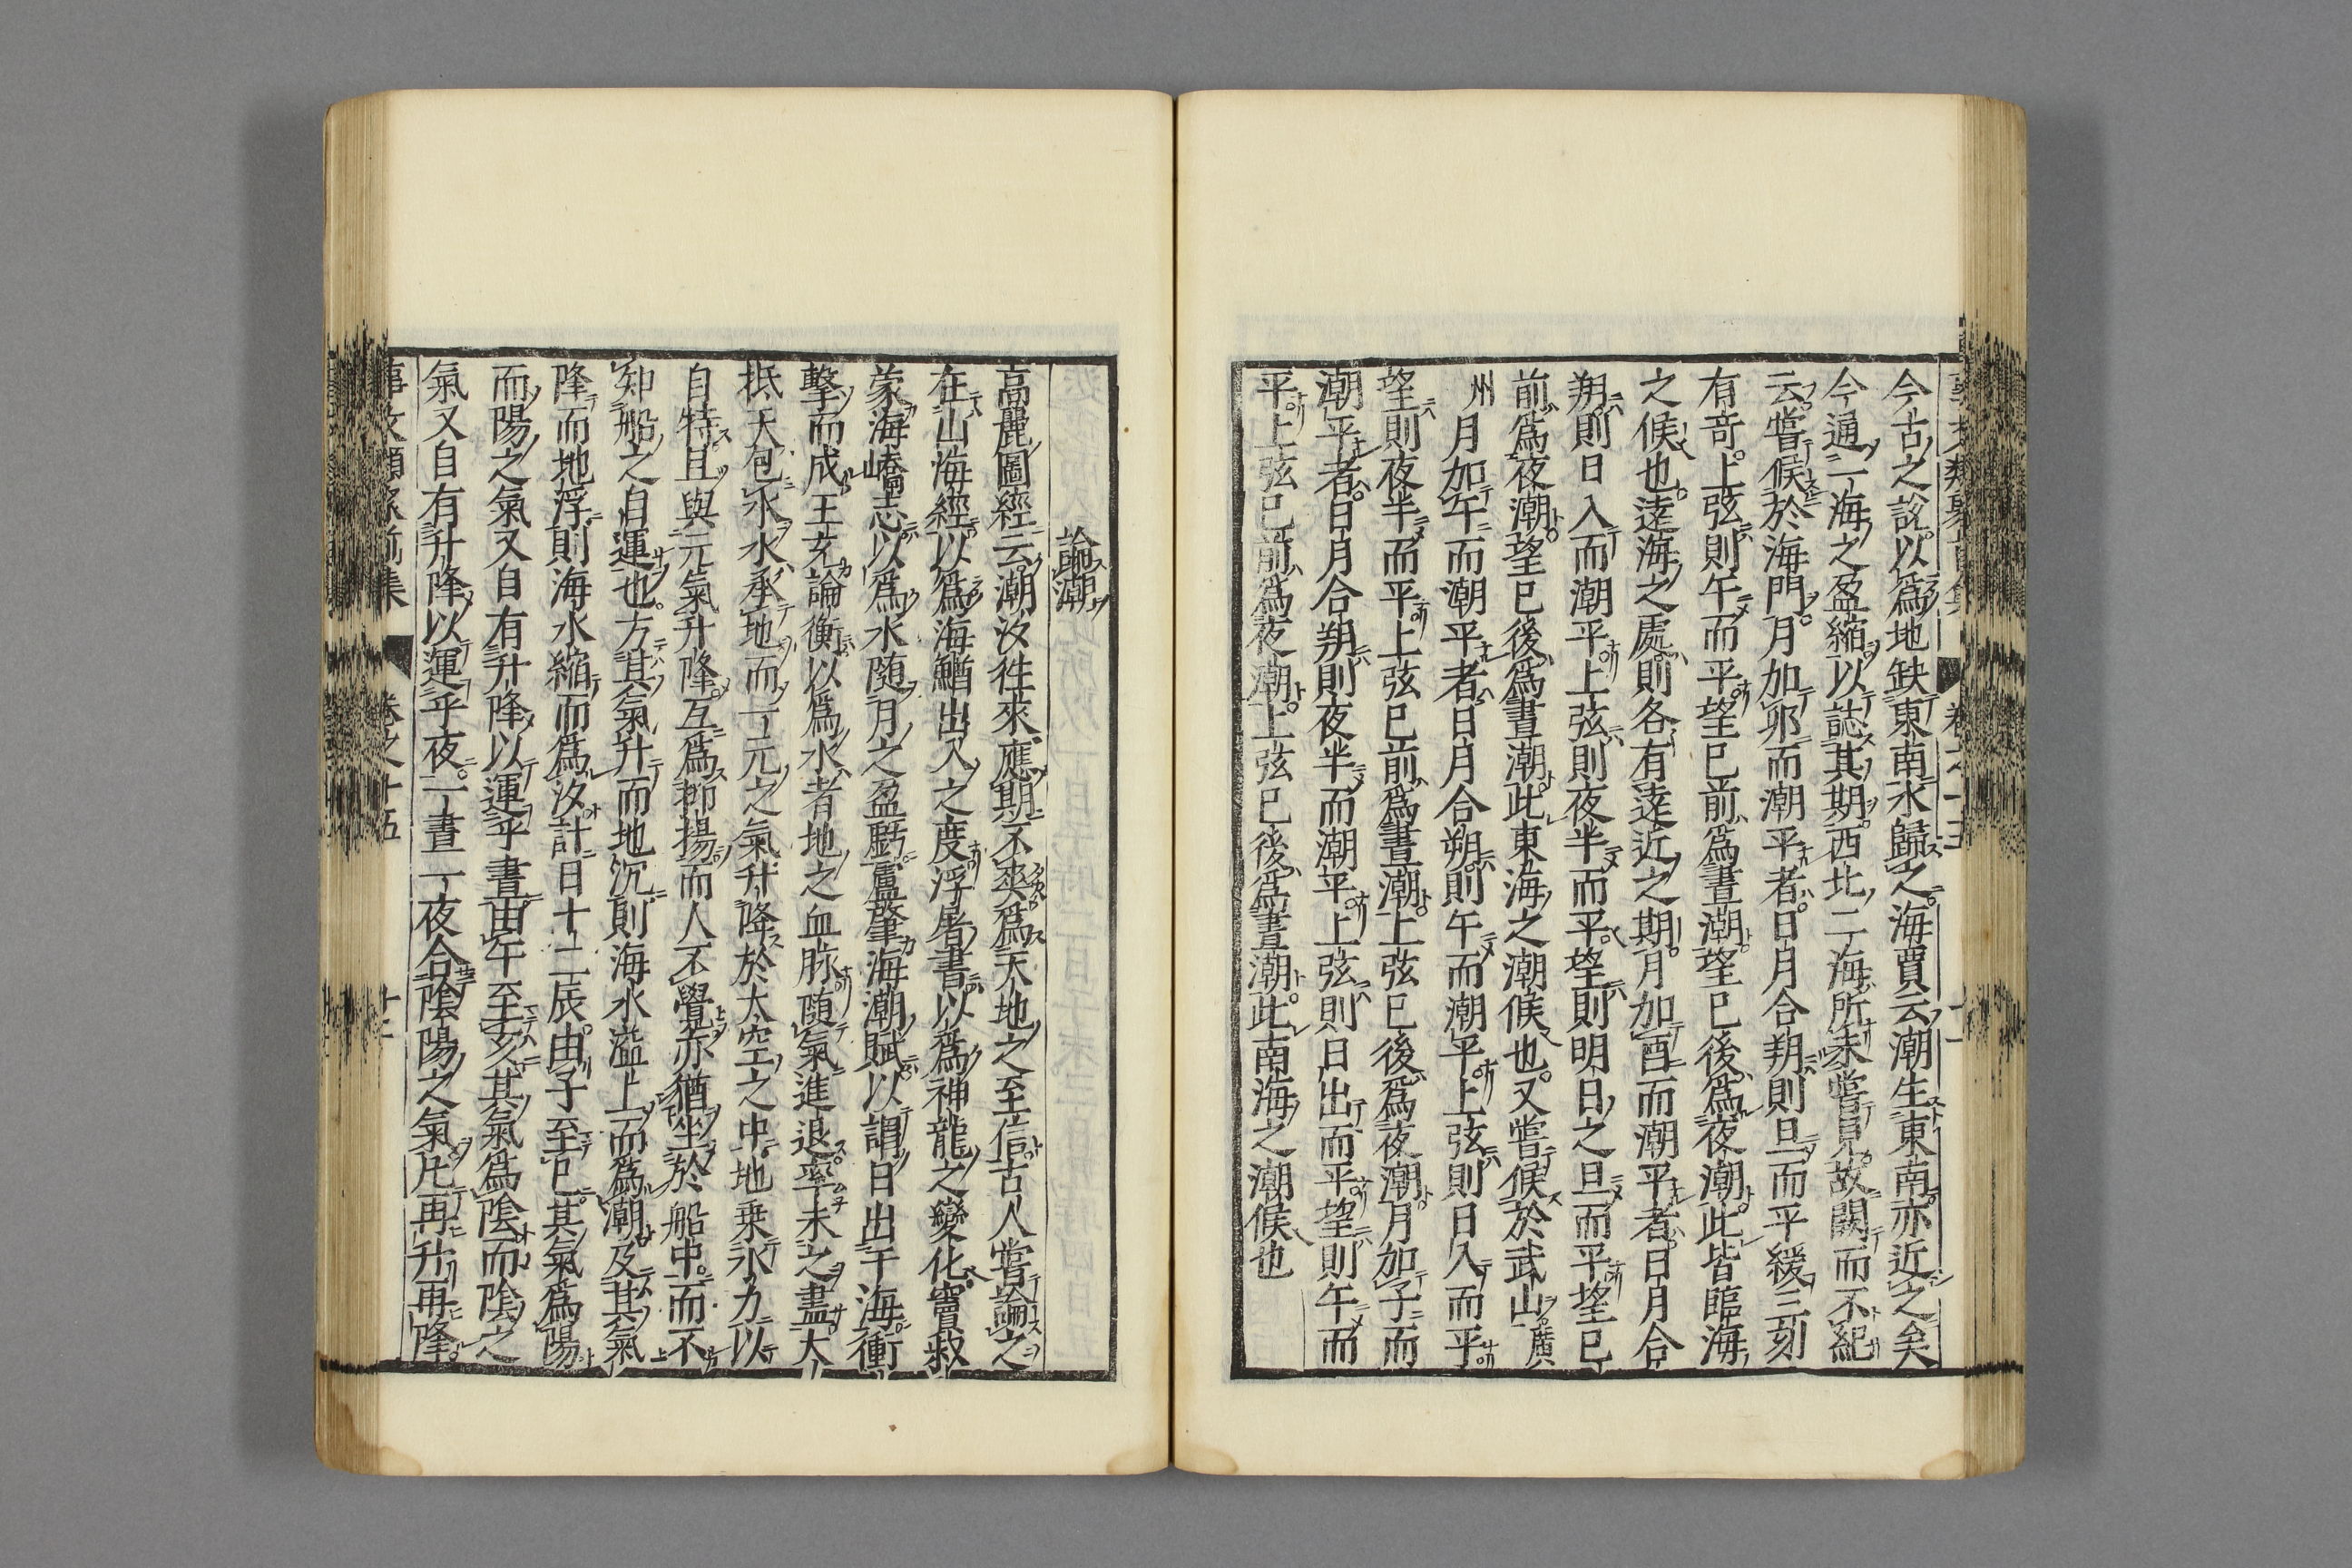 今古之說以爲地缺東南水歸之海賈云潮生東南亦近之矣
今通二海之盈縮以誌其期西北二海所未嘗見故闕而不紀
云嘗候於海門月加卯而潮平者日月合朔則旦而平緩三刻
有奇上弦則午而平望已前爲晝潮望已後爲夜潮此皆臨海
之候也遠海之處則各有遠近之期月加酉而潮平者日月合
朔則日入而潮平上弦則夜半而平望則明日之旦而平望已
前爲夜潮望已後爲晝潮此東海之潮候也又嘗候於武山廣
州月加午而潮平者日月合朔則午而潮平上弦則日入而平
望則夜半而平上弦已前爲晝潮上弦已後爲夜潮月加子而
潮平者日月合朔則夜半而潮平上弦則日出而平望則午而
平上弦已前爲夜潮上弦已後爲晝潮此南海之潮候也
論潮
高麗圖經云潮汐徃來應期不爽爲天地之至信古人嘗論之
在山海經以爲海鰌出入之度浮屠書以爲神龍之變化竇叔
蒙海嶠志以爲水随月之盈虧盧肇海潮賦以謂日出于海衝
擊而成王充論衡以爲水者地之血脉随氣進退率未之盡大
抵天包水水承地而一元之氣升降於太空之中地乗水力以
自持且與元氣升降互爲抑揚而人不覺亦猶坐於船中而不
知船之自運也方其氣升而地沉則海水溢上而爲潮及其氣
降而地浮則海水縮而爲汐計日十二辰由子至巳其氣爲陽
而陽之氣又自有升降以運乎晝由午至亥其氣爲陰而陰之
氣又自有升降以運乎夜一晝一夜合陰陽之氣凡再升再降
事文類聚前集　卷之十五　十二